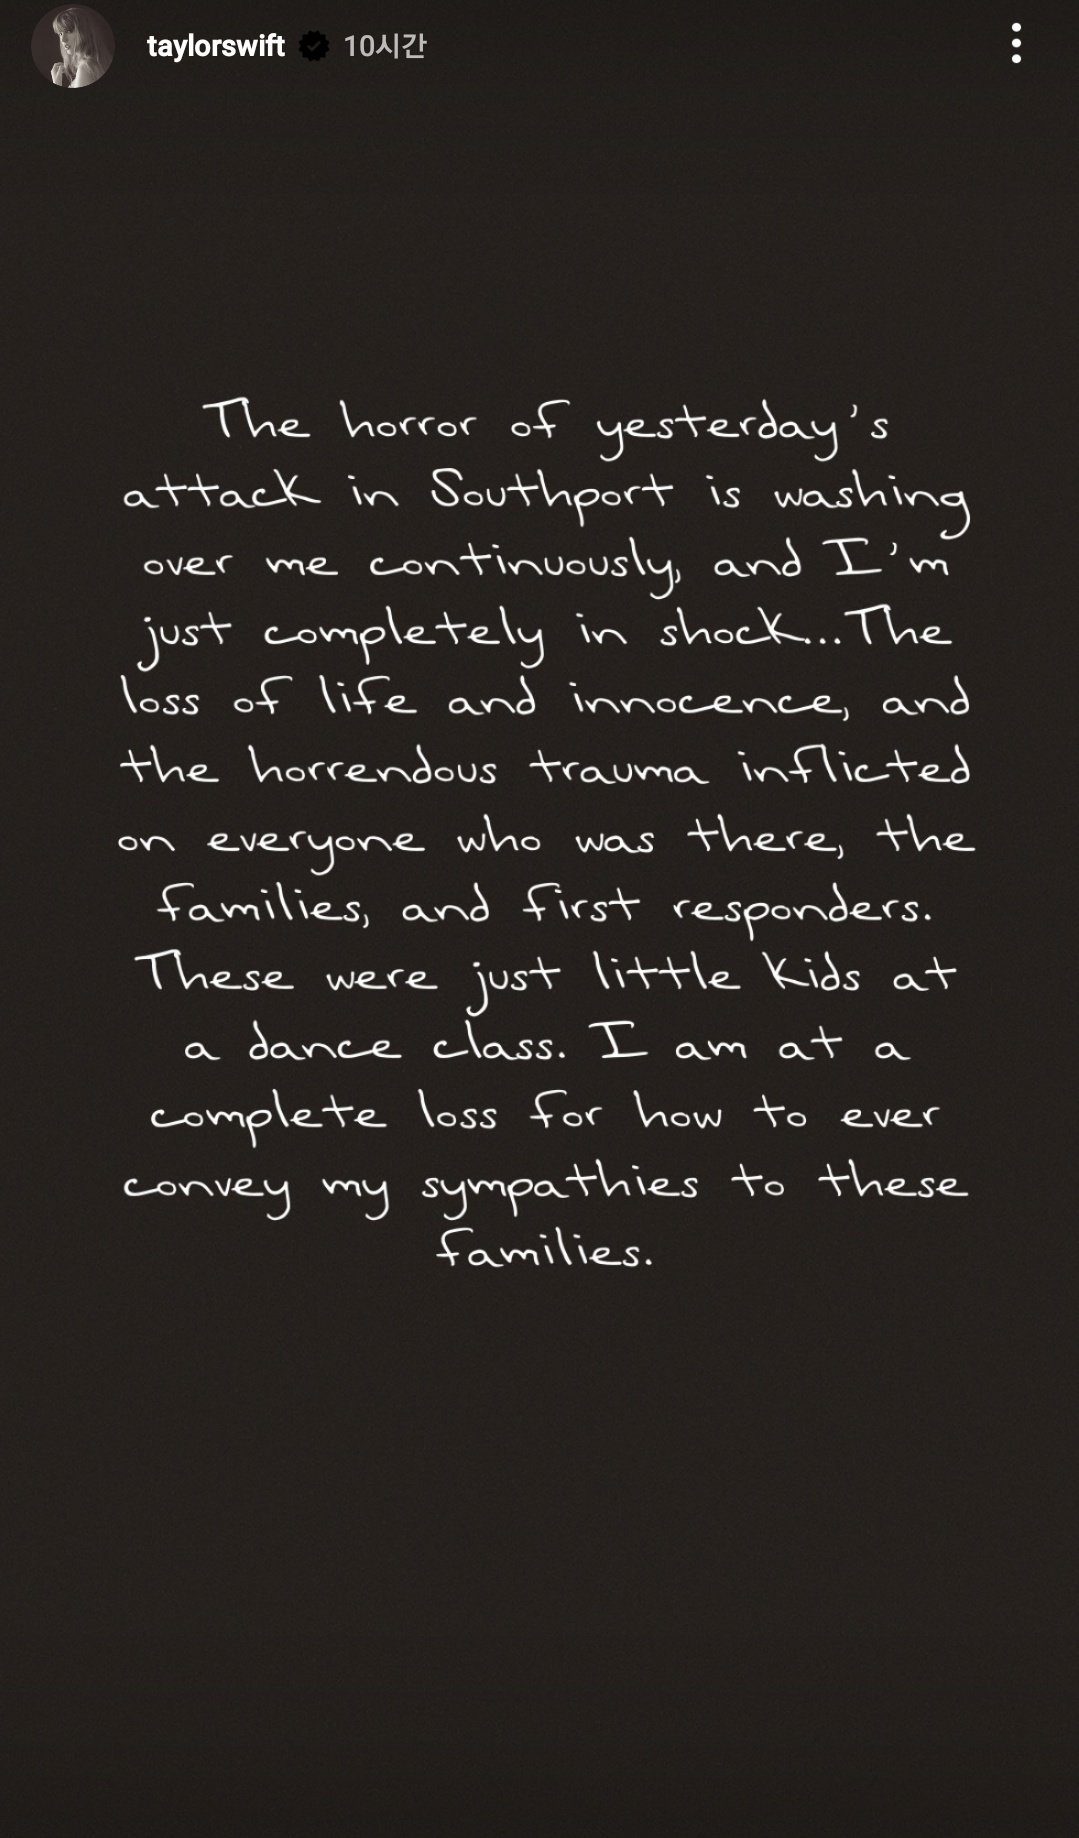 taylorswift 10시간
The horror of yesterday's
attack in Southport is washing
over me continuously, and I'm
just completely in shock...The
loss of life and innocence, and
the horrendous trauma inflicted
on everyone who was there, the
families, and first responders.
These were just little kids at
a dance class. I am at a
complete loss for how to ever
convey my sympathies to these
families.